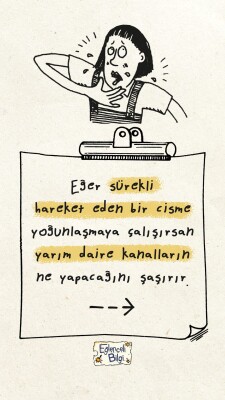 Eğer sürekli
hareket eden bir cisme
yoğunlaşmaya çalışırsan
yarım daire kanalların
ne yapacağını şaşırır.
Eğlenceli
Bilgi